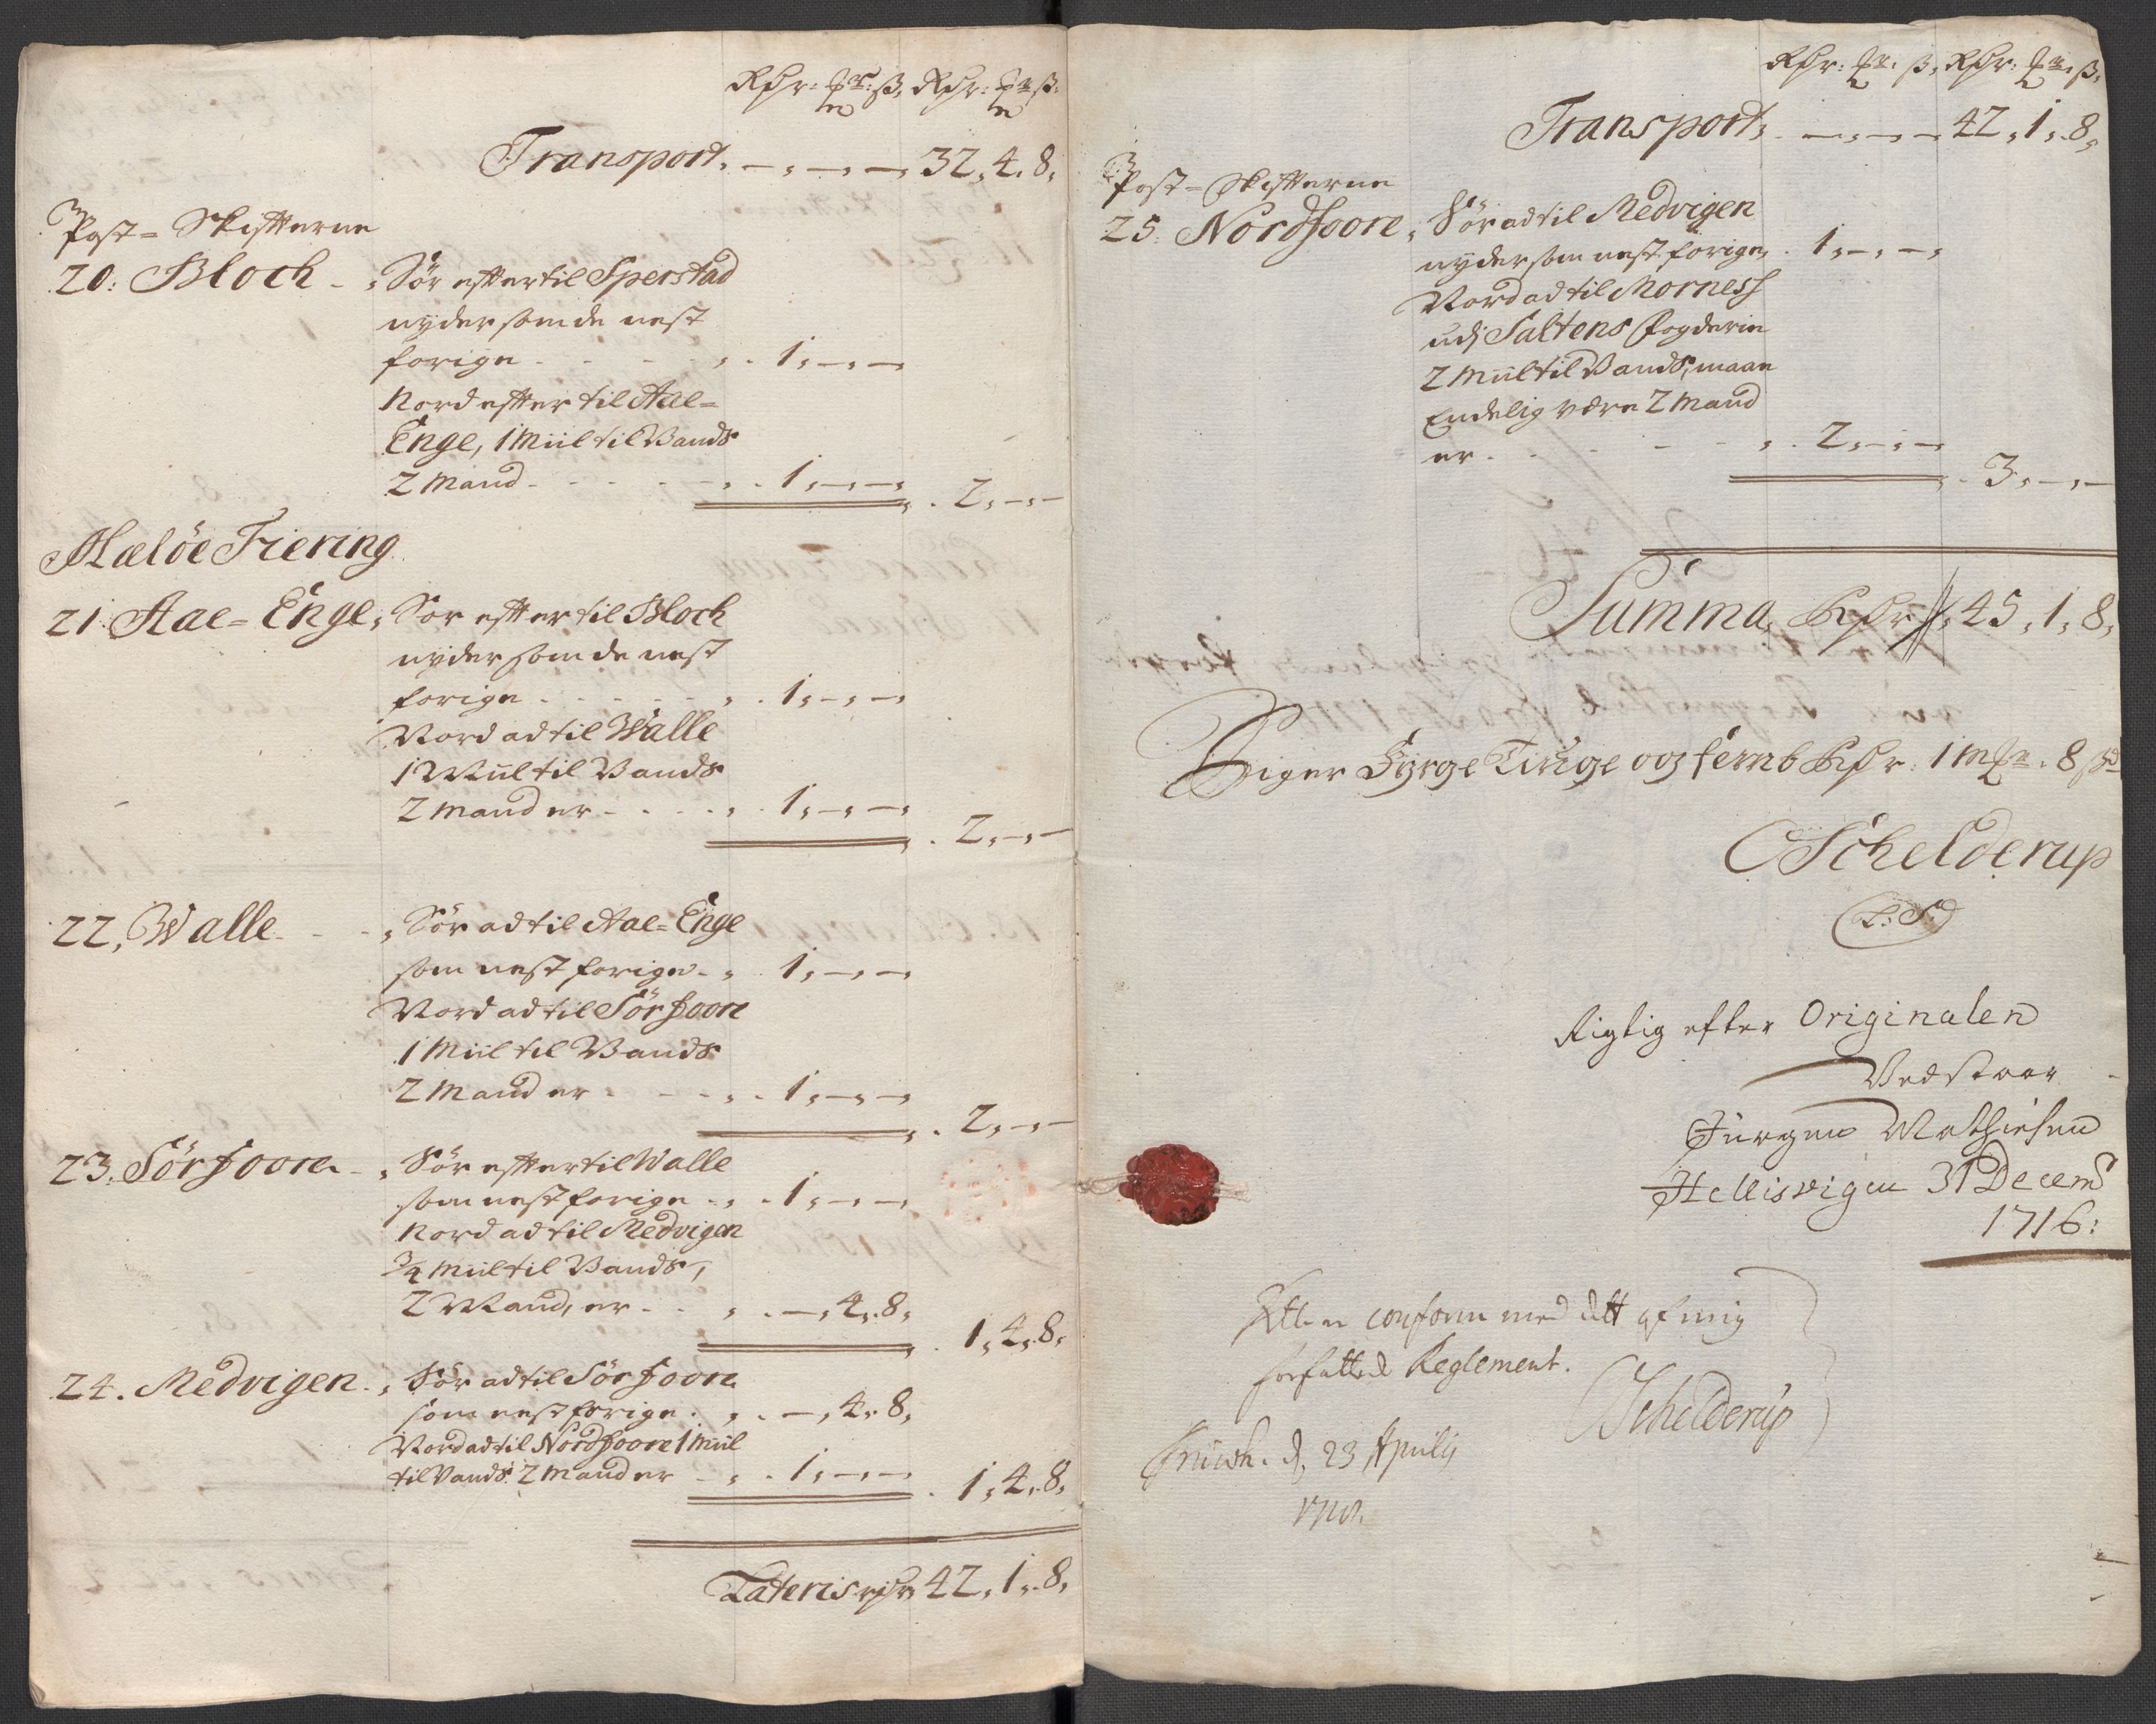 Rdr: mk: ß, Rdr: mk ß:
Transport, - , - , - 32, 4, 8,
Post-Skifterne
20: Bloch - , Sør effter til Sperstad
nyder som de nest
forige - - - - , . 1, -, -,
Nord effter til Aae-
Enge, 1 Miil til Vands
2 Mand - - - - , . 1, -, -, . 2, -, -
Alæløe Fiering
21. Aae-Enge, Sør effter til Bloch
nyder som de nest
forige - - - - , . 1, -, -,
Nord ad til Walle
1 Miil til Vands
2 Mand er - - - , . 1, -, -, . 2, -, -
22, Walle - - , Sør ad til Aae-Enge
som nest forige - , 1, -, -,
Nord ad til Sørfoore
1 Miil til Vands
2 Mand er - - , . 1, -, -, . 2, -, -
23. Sørfoore - , Sør effter til Walle
som nest forige - , . 1, -, -,
Nord ad til Medvigen
3/4 Miil til Vands,
2 Mand, er - - , . -, 4, 8, . 1, 4, 8,
24. Medvigen - , Sør ad til Sørfoore
som nest forige . , . -, 4, 8,
Nord ad til Nordfoore 1 Miil
til Vands: 2 Mand er - , . 1, -, -, . 1, 4, 8,
Lateris rdr, 42, 1, 8,
Rdr: mk: ß, Rdr: mk: ß,
Transport, - , - , - 42, 1, 8,
Post-Skifterne
25. Nordfoore, Sør ad til Medvigen
nyder som nest forige, . 1, -, -,
Nord ad til Morness
udj Saltens Fogderie
2 Miil til Vands, maae
Endelig være 2 Mand
er - - - - , . 2, -, -, . 3, -, -
Summa, Rdr 45, 1, 8,
Siger Fyrge Tiuge og femb Rdr: 1 mk: 8 ß
OSchelderup
(L: S:)
Rigtig efter Originalen
Vedstaar
Jürgen Mathiesen
Hellisvigen 31 Decemb
1716:
Att er conform med dett af mig
forfattede Reglement.
OSchelderup
d. 23 Aprilij